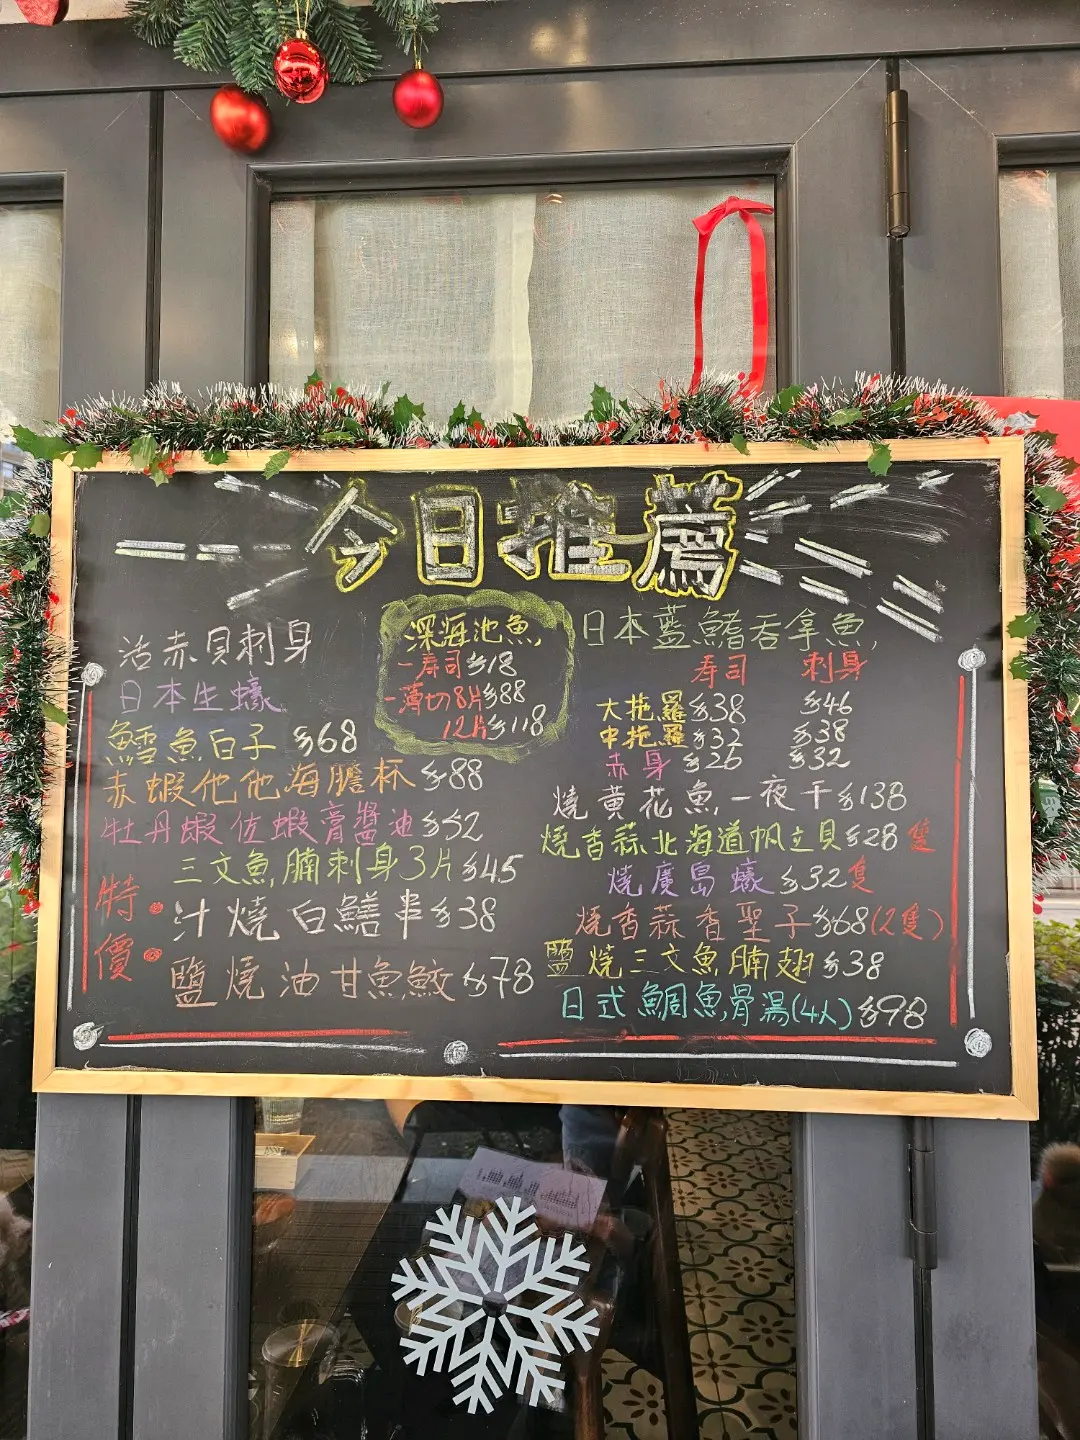 今日推薦
活赤貝刺身
日本生蠔
鱈魚白子 $68
赤蝦他他海膽杯 $88
牡丹蝦佐蝦膏醬油 $52
三文魚腩刺身3片 $45
特價
汁燒白鱔串 $38
鹽燒油甘魚鮫 $78
深海池魚
一寿司 $18
一薄切8片 $88
12片 $118
日本藍鰭吞拿魚
寿司 刺身
大拖羅 $38 $46
中拖羅 $32 $38
赤身 $26 $32
燒黃花魚一夜干 $138
燒香蒜北海道帆立貝 $28 隻
燒廣島蠔 $32 隻
燒香蒜香聖子 $68 (2隻)
鹽燒三文魚腩翅 $38
日式鯛魚骨湯(4人) $98